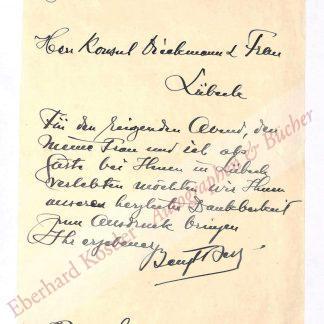 Herr Konsul Dieckmann & Frau
Lübeck
Für den Abend, den
meine Frau und ich als
Gäste bei Ihnen in Lübeck
verlebten möchten wir Ihnen
unseren herzlichen Dankbarkeit
zum Ausdruck bringen
Ihr ergebener
Bengt
Eberhard Köstler Autographen & Bücher